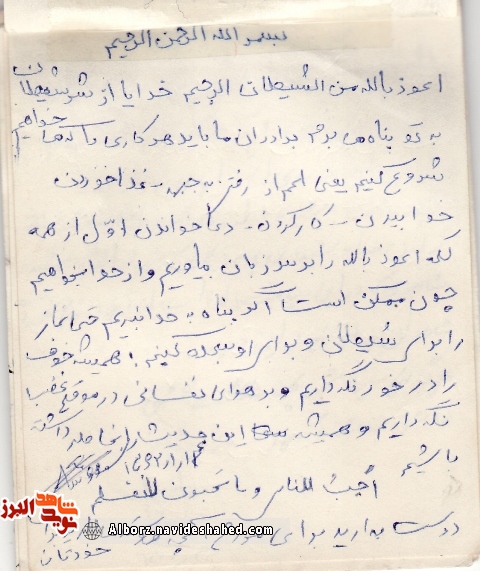 بسم الله الرحمن الرحیم
اعوذ بالله من الشیطان الرجیم خدایا از شر شیطان
به تو پناه می بریم برادران ما باید هر کاری را که می خواهیم
شروع کنیم یعنی اعم از رفتن به جبهه - غذا خوردن
خوابیدن - کار کردن - دعا خواندن اوّل از همه
کلمه اعوذ بالله را بر سر زبان بیاوریم و از خدا بخواهیم
چون ممکن است اگر پناه به خدا نبریم حتی نماز
را برای شیطان و برای او سجده کنیم، همیشه خوف
را در خود نگه داریم و بر هوای نفسانی در موقع غضب
نگه داریم و همیشه این حدیث را بخاطر داشته
باشیم
أحِبّ للناس و ما تحبون لنفسکم
دوست بدارید برای مردم
خودتان
شاهد
نوید
البرز
Alborz.navideshahed.com